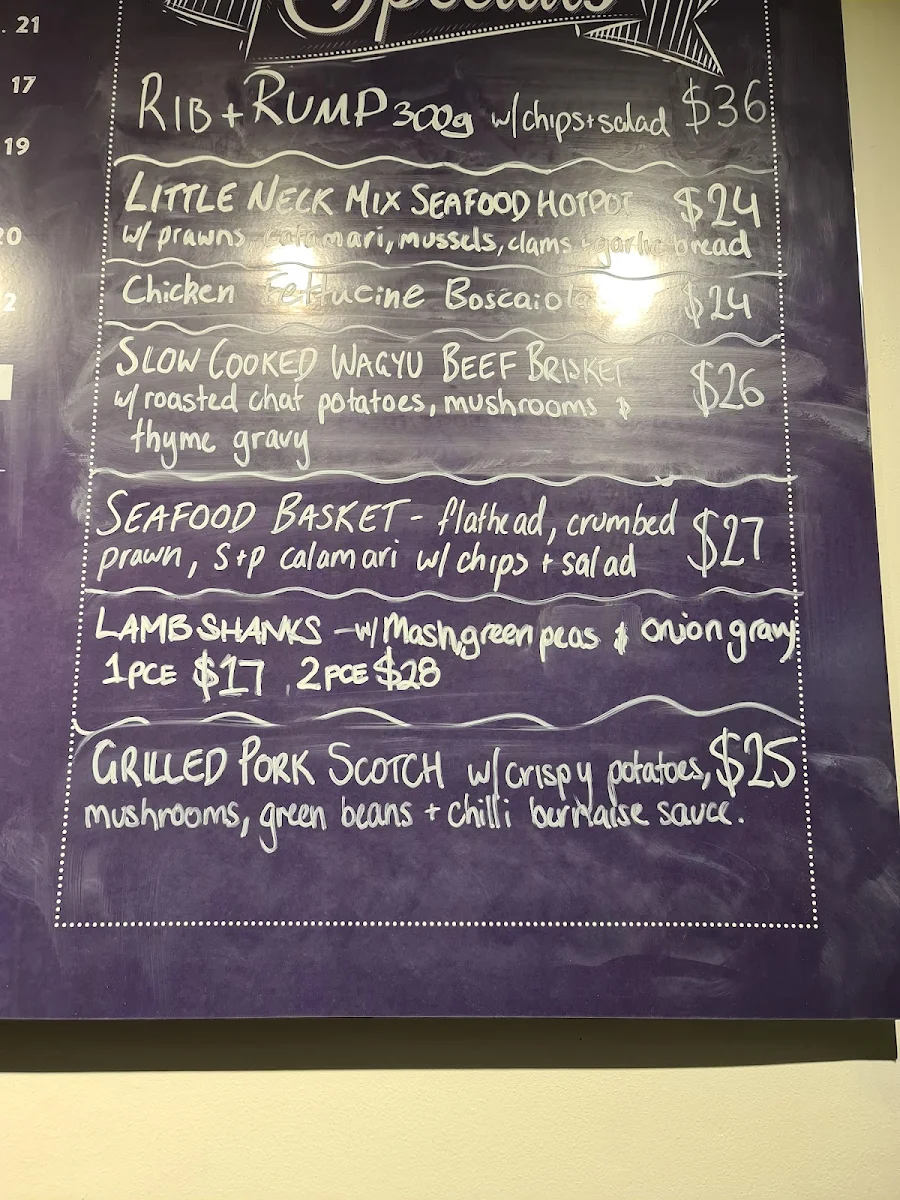 Specials
. 21
17
19
20
2
RIB + RUMP 300g w/chips+salad $36
LITTLE NECK MIX SEAFOOD HOTPOT $24
w/ prawns, calamari, mussels, clams + garlic bread
Chicken Fettucine Boscaiola $24
SLOW COOKED WAGYU BEEF BRISKET $26
w/ roasted chat potatoes, mushrooms &
thyme gravy
SEAFOOD BASKET - flathead, crumbed $27
prawn, S+P calamari w/ chips + salad
LAMB SHANKS - w/ Mash, green peas & onion gravy
1PCE $17 2PCE $28
GRILLED PORK SCOTCH w/ crispy potatoes, $25
mushrooms, green beans + chilli bernaise sauce.